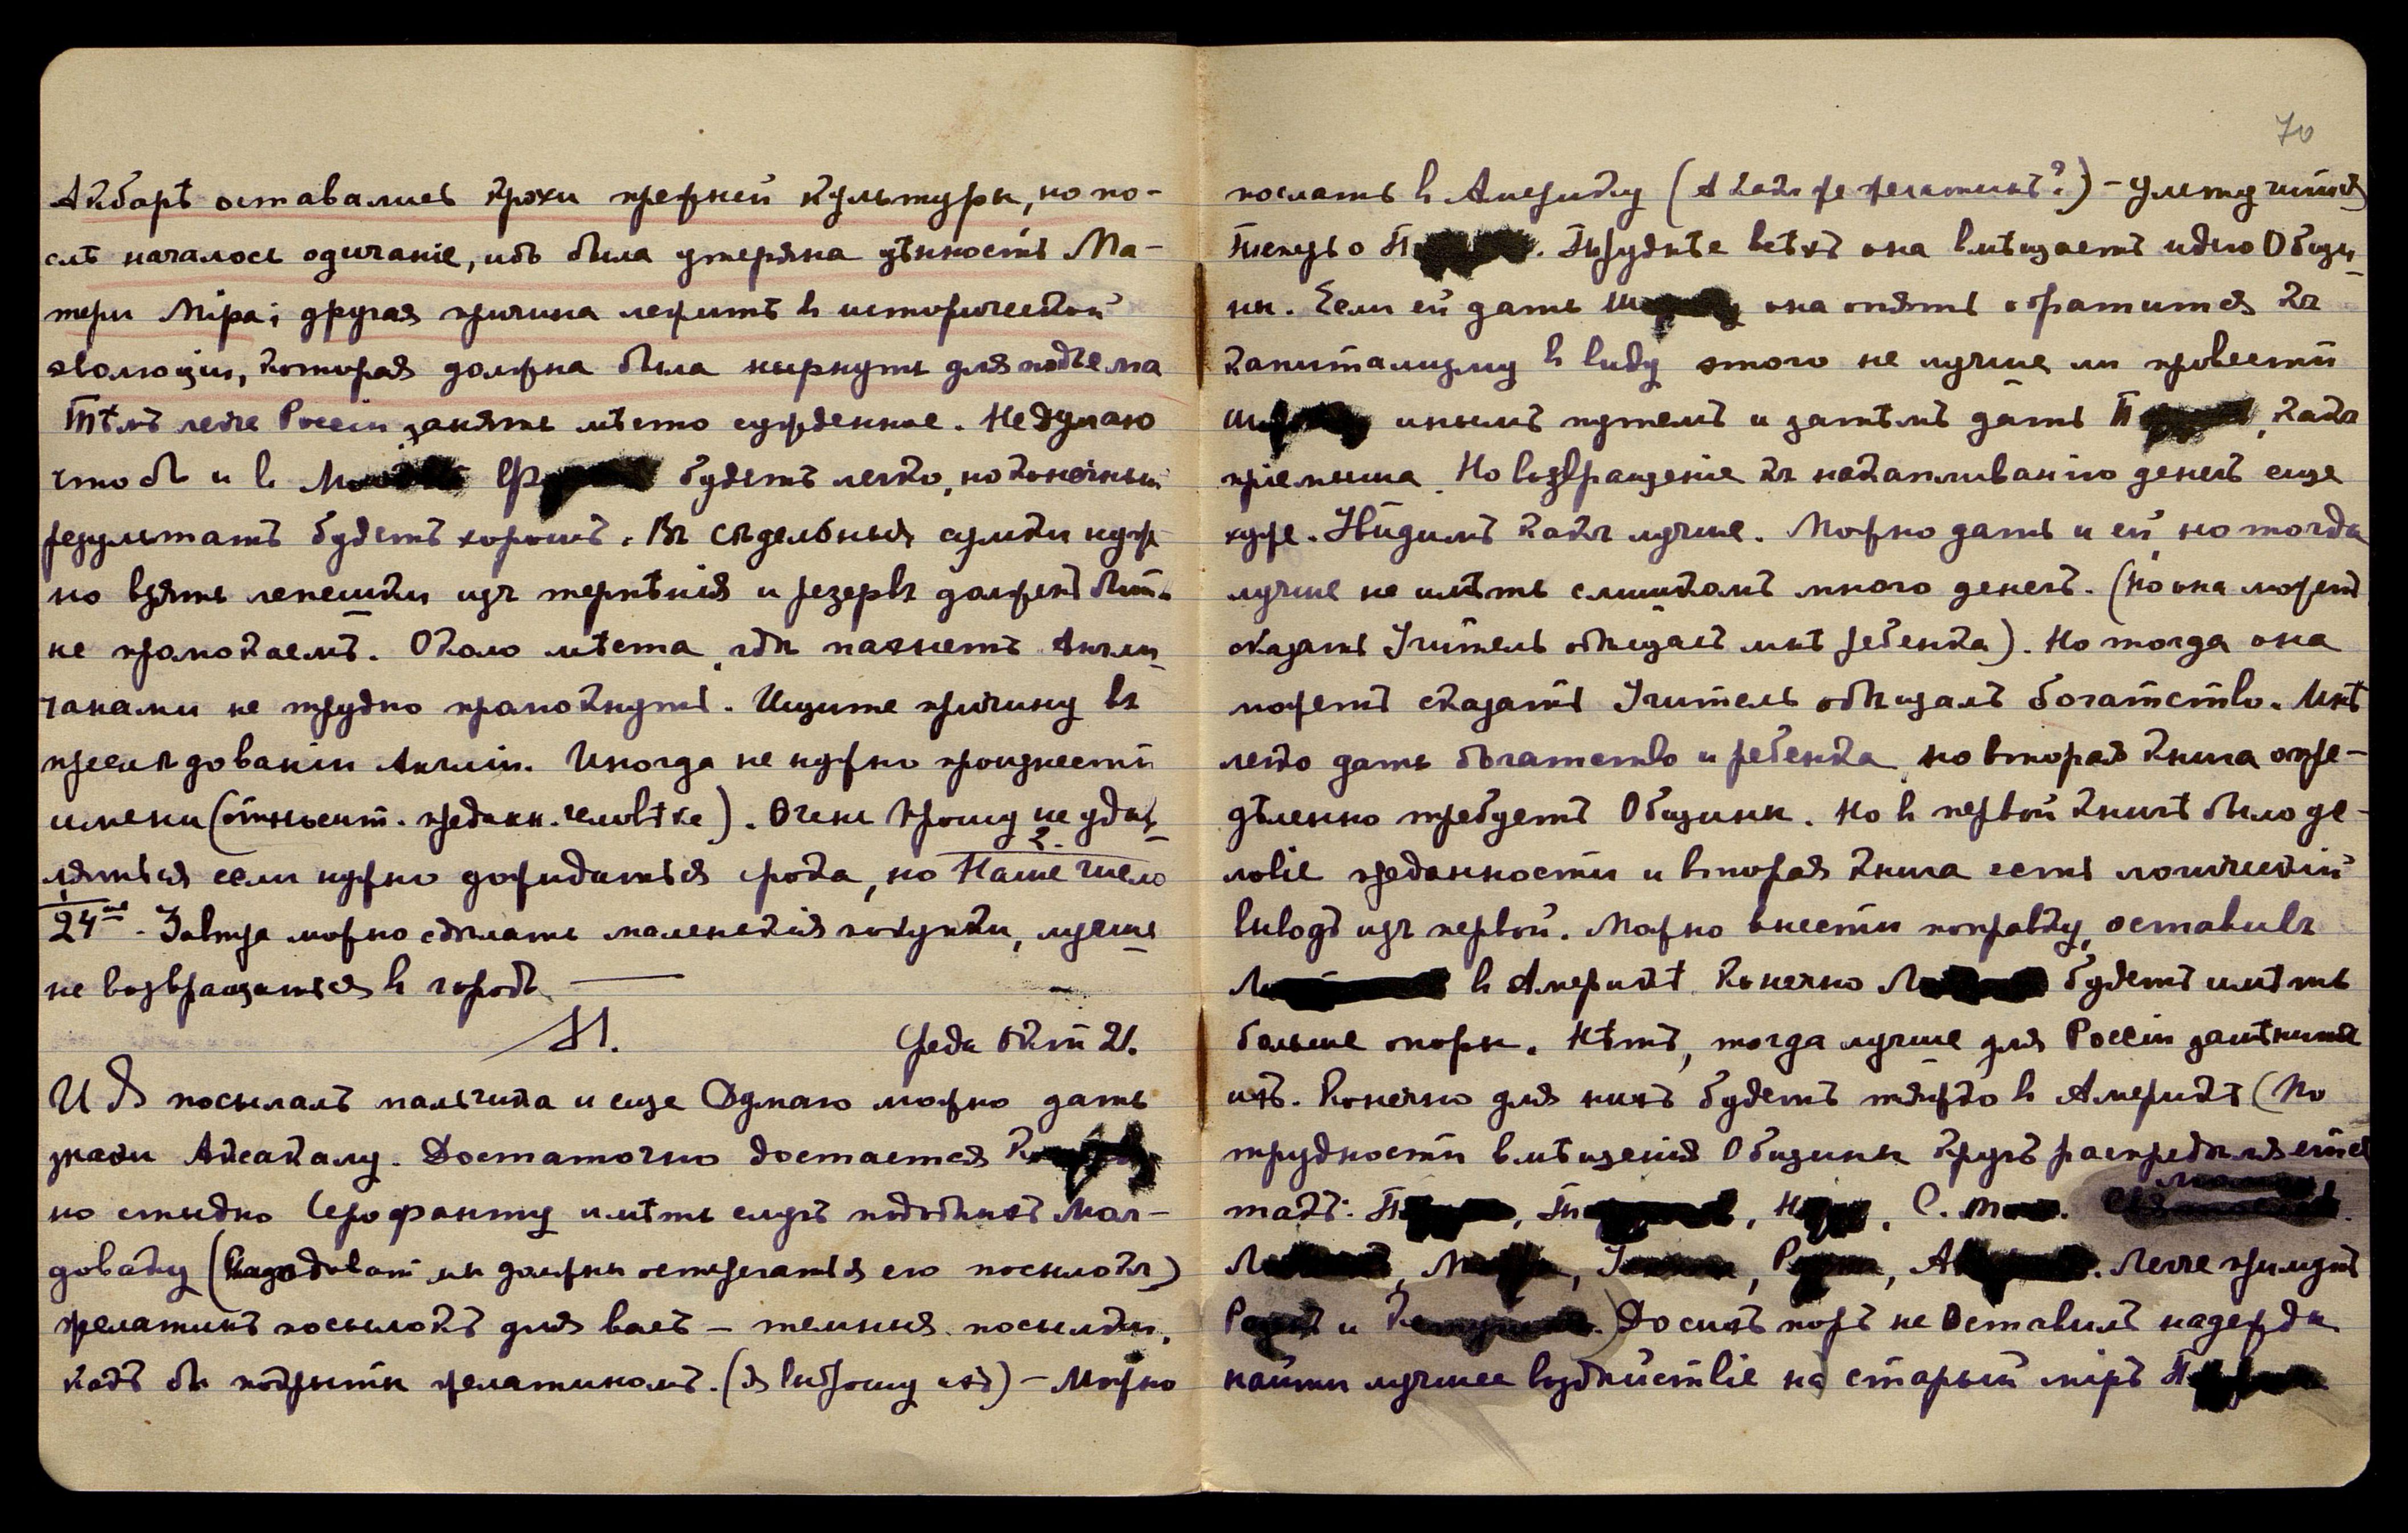 Акбарѣ оставались крохи прежней культуры, но по-
слѣ началось одичаніе, ибо была утеряна цѣнность Ма-
тери Міра; другая причина лежитъ в исторической
эволюціи, которая должна была нырнуть для подъема
Тѣмъ легче Россіи занять мѣсто сужденное. Не думаю
чтобъ и в будетъ легко, но конечный
результатъ будетъ хорошъ. Въ сѣдельныя сумки нуж-
но взять лепешки изъ терпѣнія и резервъ долженъ быть
не промокаемъ. Около мѣста, гдѣ пахнетъ Англи-
чанами не трудно промокнуть. Ищите причину въ
преслѣдованіи Англіи. Иногда не нужно произнести
имени (относит. преданн. человѣке). Очень прошу не удив-
ляться если нужно дождаться срока, но Наше число
24ое - Завтра можно сдѣлать маленькія покупки, лучше
не возвращаться в городъ —
Среда Окт 21.
И Я посылалъ пальчика и еще Думаю можно дать
знаки Аксакалу. Достаточно достается
но стыдно Іерофанту имѣть слугъ подобныхъ Мол-
доваку ( мы должны остерегаться его посылокъ)
желатинъ посылокъ для васъ — темныя посылки,
какъ бы покрыты желатиномъ. (Я выброшу ихъ) — Можно
70
послать в Америку (А какъ же желатинъ?) — улетучится
Теперь о Труднѣе всѣхъ она вмѣщаетъ идею Общи-
ны. Если ей дать она опять обратится къ
капитализму в виду этого не лучше ли провести
инымъ путемъ и затѣмъ дать какъ
пріемыша. Но возвращеніе къ накапливанію денегъ еще
хуже. Увидимъ какъ лучше. Можно дать и ей, но тогда
лучше не имѣть слишкомъ много денегъ. (Но она можетъ
сказать Учитель обѣщалъ мнѣ ребенка). Но тогда она
можетъ сказать Учитель обѣщалъ богатство. Мнѣ
легко дать богатство и ребенка, но вторая книга опре-
дѣленно требуетъ Общины. Но в первой книгѣ было
преданности и вторая книга есть логическій
выводъ изъ первой. Можно внести поправку, оставивъ
в Америкѣ Конечно будетъ имѣть
больше опоры. Нѣтъ, тогда лучше для Россіи замѣнить
ихъ. Конечно для нихъ будетъ тяжко в Америкѣ (По
трудности вмѣщенія Общины кругъ распредѣляется
такъ:
Легче примутъ
и ) До сихъ поръ не Оставилъ надежды
найти лучшее воздѣйствіе на старый міръ